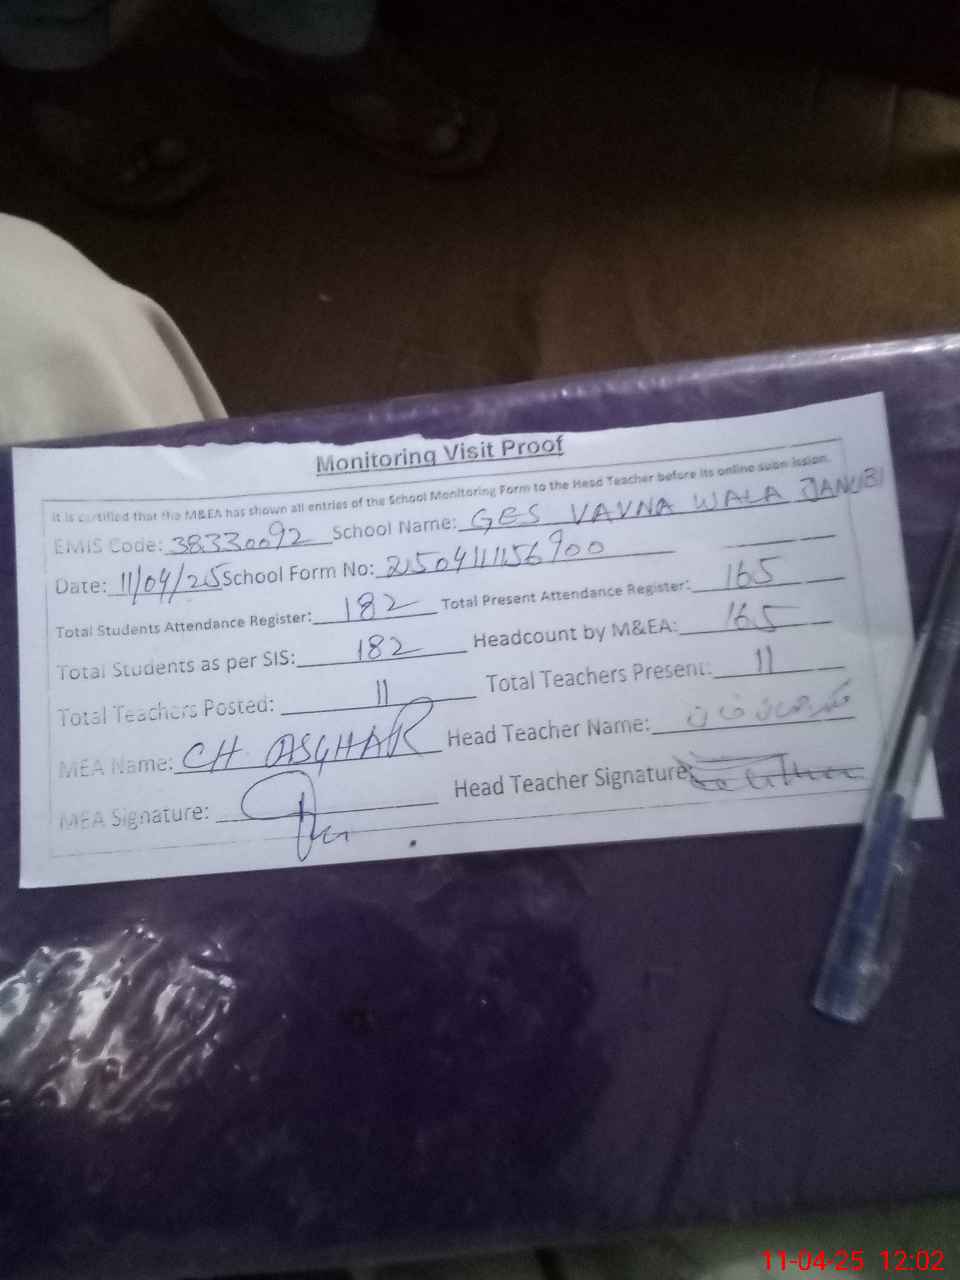 Monitoring Visit Proof
It is certified that the M&EA has shown all entries of the School Monitoring Form to the Head Teacher before its online submission.
EMIS Code: 38330092 School Name: GES VAVNA WALA JANUBI
Date: 11/04/25 School Form No: 21504111156900
Total Students Attendance Register: 182 Total Present Attendance Register: 165
Total Students as per SIS: 182 Headcount by M&EA: 165
Total Teachers Posted: 11 Total Teachers Present: 11
MEA Name: CH. ASGHAR Head Teacher Name:
MEA Signature: Head Teacher Signature:
11-04-25 12:02